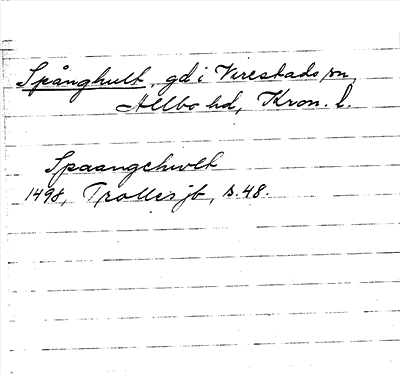 Spånghult, gd i Virestads sn,
Allbo hd, Kron. l.
Spaangehwlt
1498, Trolles jb, s. 48.